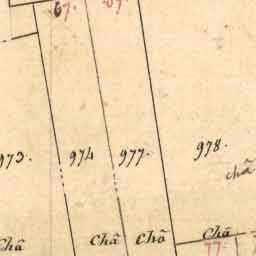 67. 67.
973. 974 977. 978.
châ
Châ Châ Châ Châ
77.